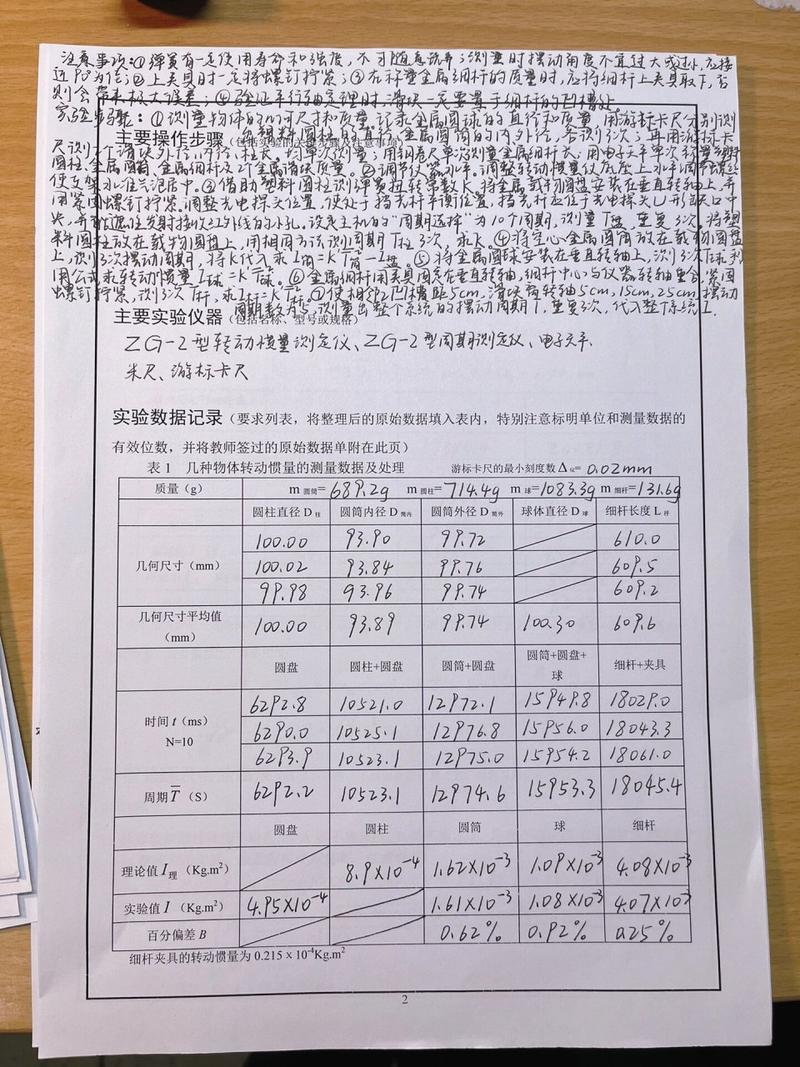 注意事项:①弹簧有一定使用寿命和强度,不可随意玩弄;测量时摆动角度不宜过大或过小,应接
近90°为佳;②上夹具时一定将螺钉拧紧;③在称量金属细杆的质量时,应将细杆上夹具取下,否
则会带来极大误差;④验证平行轴定理时,滑块一定要置于细杆的凹槽处
实验步骤:①测量物体的几何尺寸和质量:记录金属圆球的直径和质量,用游标卡尺分别测
主要操作步骤
塑料圆柱的直径,金属圆筒的内外径,各测3次;再用游标卡
尺测一个滑块外径,内径,柱长,均单次测量;用钢卷尺单次测量金属细杆长;用电子天平单次称量塑料
圆柱,金属圆筒,金属细杆及2个金属滑块质量。②调节仪器水平。调整转动惯量仪底座上水平调节螺钉
使支架水准气泡居中。③借助塑料圆柱测弹簧扭转常数K。将金属载物圆盘安装在垂直转轴上,并
用紧固螺钉拧紧,调整光电探头位置,使处于挡光杆平衡位置,挡光杆应位于光电探头U形缺口中
央,并能遮住发射接收红外线的小孔。设定主机的“周期选择”为10个周期,测量T盘,重复3次。将塑
料圆柱放在载物圆盘上,用相同方法测周期T柱3次,求K。④将空心金属圆筒放在载物圆盘
上,测3次摆动周期,将K代入求I筒=KT²筒-I盘。⑤将金属圆球安装在垂直转轴上,测3次T球利
用公式求转动惯量I球=KT²球。⑥金属细杆用夹具固定在垂直转轴,细杆中心与仪器转轴重合,紧固
螺钉拧紧,测3次T杆,求I杆=KT²杆。⑦使相邻凹槽距5cm,滑块离转轴5cm,15cm,25cm,摆动
周期数为5,测量出整个系统的摆动周期T,重复3次,代入整个系统I.
主要实验仪器(包括名称、型号或规格)
ZG-2型转动惯量测定仪、ZG-2型周期测定仪、电子天平、
米尺、游标卡尺
实验数据记录(要求列表,将整理后的原始数据填入表内,特别注意标明单位和测量数据的
有效位数,并将教师签过的原始数据单附在此页)
表1 几种物体转动惯量的测量数据及处理 游标卡尺的最小刻度数Δ仪= 0.02mm
质量(g) m圆筒=689.2g m圆柱=714.4g m球=1083.3g m细杆=131.6g
圆柱直径D柱 圆筒内径D筒内 圆筒外径D筒外 球体直径D球 细杆长度L杆
几何尺寸(mm) 100.00 93.90 99.72 610.0
100.02 93.84 99.76 609.5
99.98 93.96 99.74 609.2
几何尺寸平均值(mm) 100.00 93.89 99.74 100.30 609.6
圆盘 圆柱+圆盘 圆筒+圆盘 圆筒+圆盘+球 细杆+夹具
时间t(ms) N=10 6292.8 10521.0 12972.1 15949.8 18029.0
6290.0 10525.1 12976.8 15956.0 18043.3
6293.9 10523.1 12975.0 15954.2 18061.0
周期T̅(S) 6292.2 10523.1 12974.6 15953.3 18045.4
圆盘 圆柱 圆筒 球 细杆
理论值I理(Kg.m²) 8.9×10⁻⁴ 1.62×10⁻³ 1.09×10⁻³ 4.08×10⁻³
实验值I(Kg.m²) 4.95×10⁻⁴ 1.61×10⁻³ 1.08×10⁻³ 4.07×10⁻³
百分偏差B 0.62% 0.92% 0.25%
细杆夹具的转动惯量为0.215 x 10⁻⁴Kg.m²
2